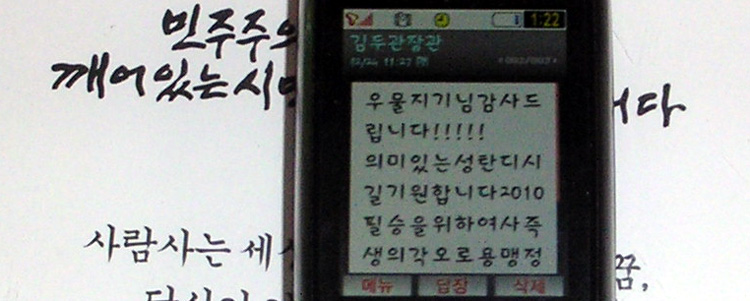 민주주의
깨어있는 시민 니다
1:22
김두관장관
12/24 11:27 PM
우물지기님감사드
립니다!!!!!
의미있는성탄디시
길기원합니다2010
필승을위하여사즉
생의각오로용맹정
메뉴 답장 삭제
사람사는 세 꿈,
당신이